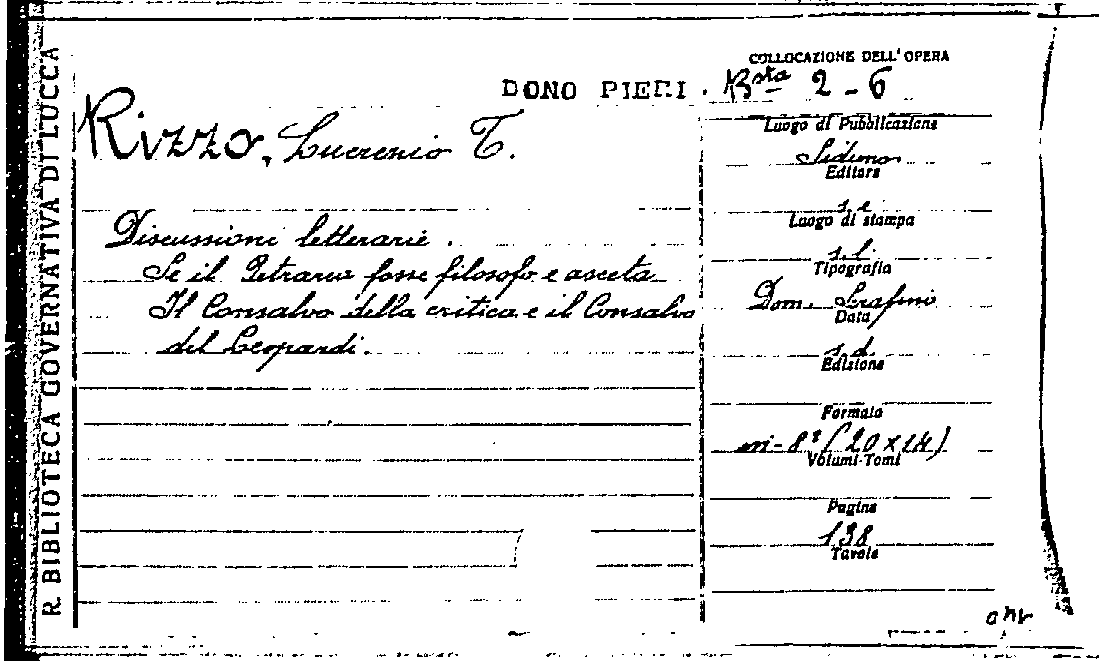 R. BIBLIOTECA GOVERNATIVA DI LUCCA
COLLOCAZIONE DELL'OPERA
DONO PIERI. Bsta 2-6
Rizzo, Lucrenio T.
Discussioni letterarie.
Se il Petrarca fosse filosofo e asceta
Il Consalvo della critica e il Consalvo
del Leopardi.
Luogo di Pubblicazione
Siderno
Editore
s.e
Luogo di stampa
s.l.
Tipografia
Dom. Serafino
Data
s.d.
Edizione
Formato
in-8° (20x14)
Volumi-Tomi
Pagine
138
Tavole